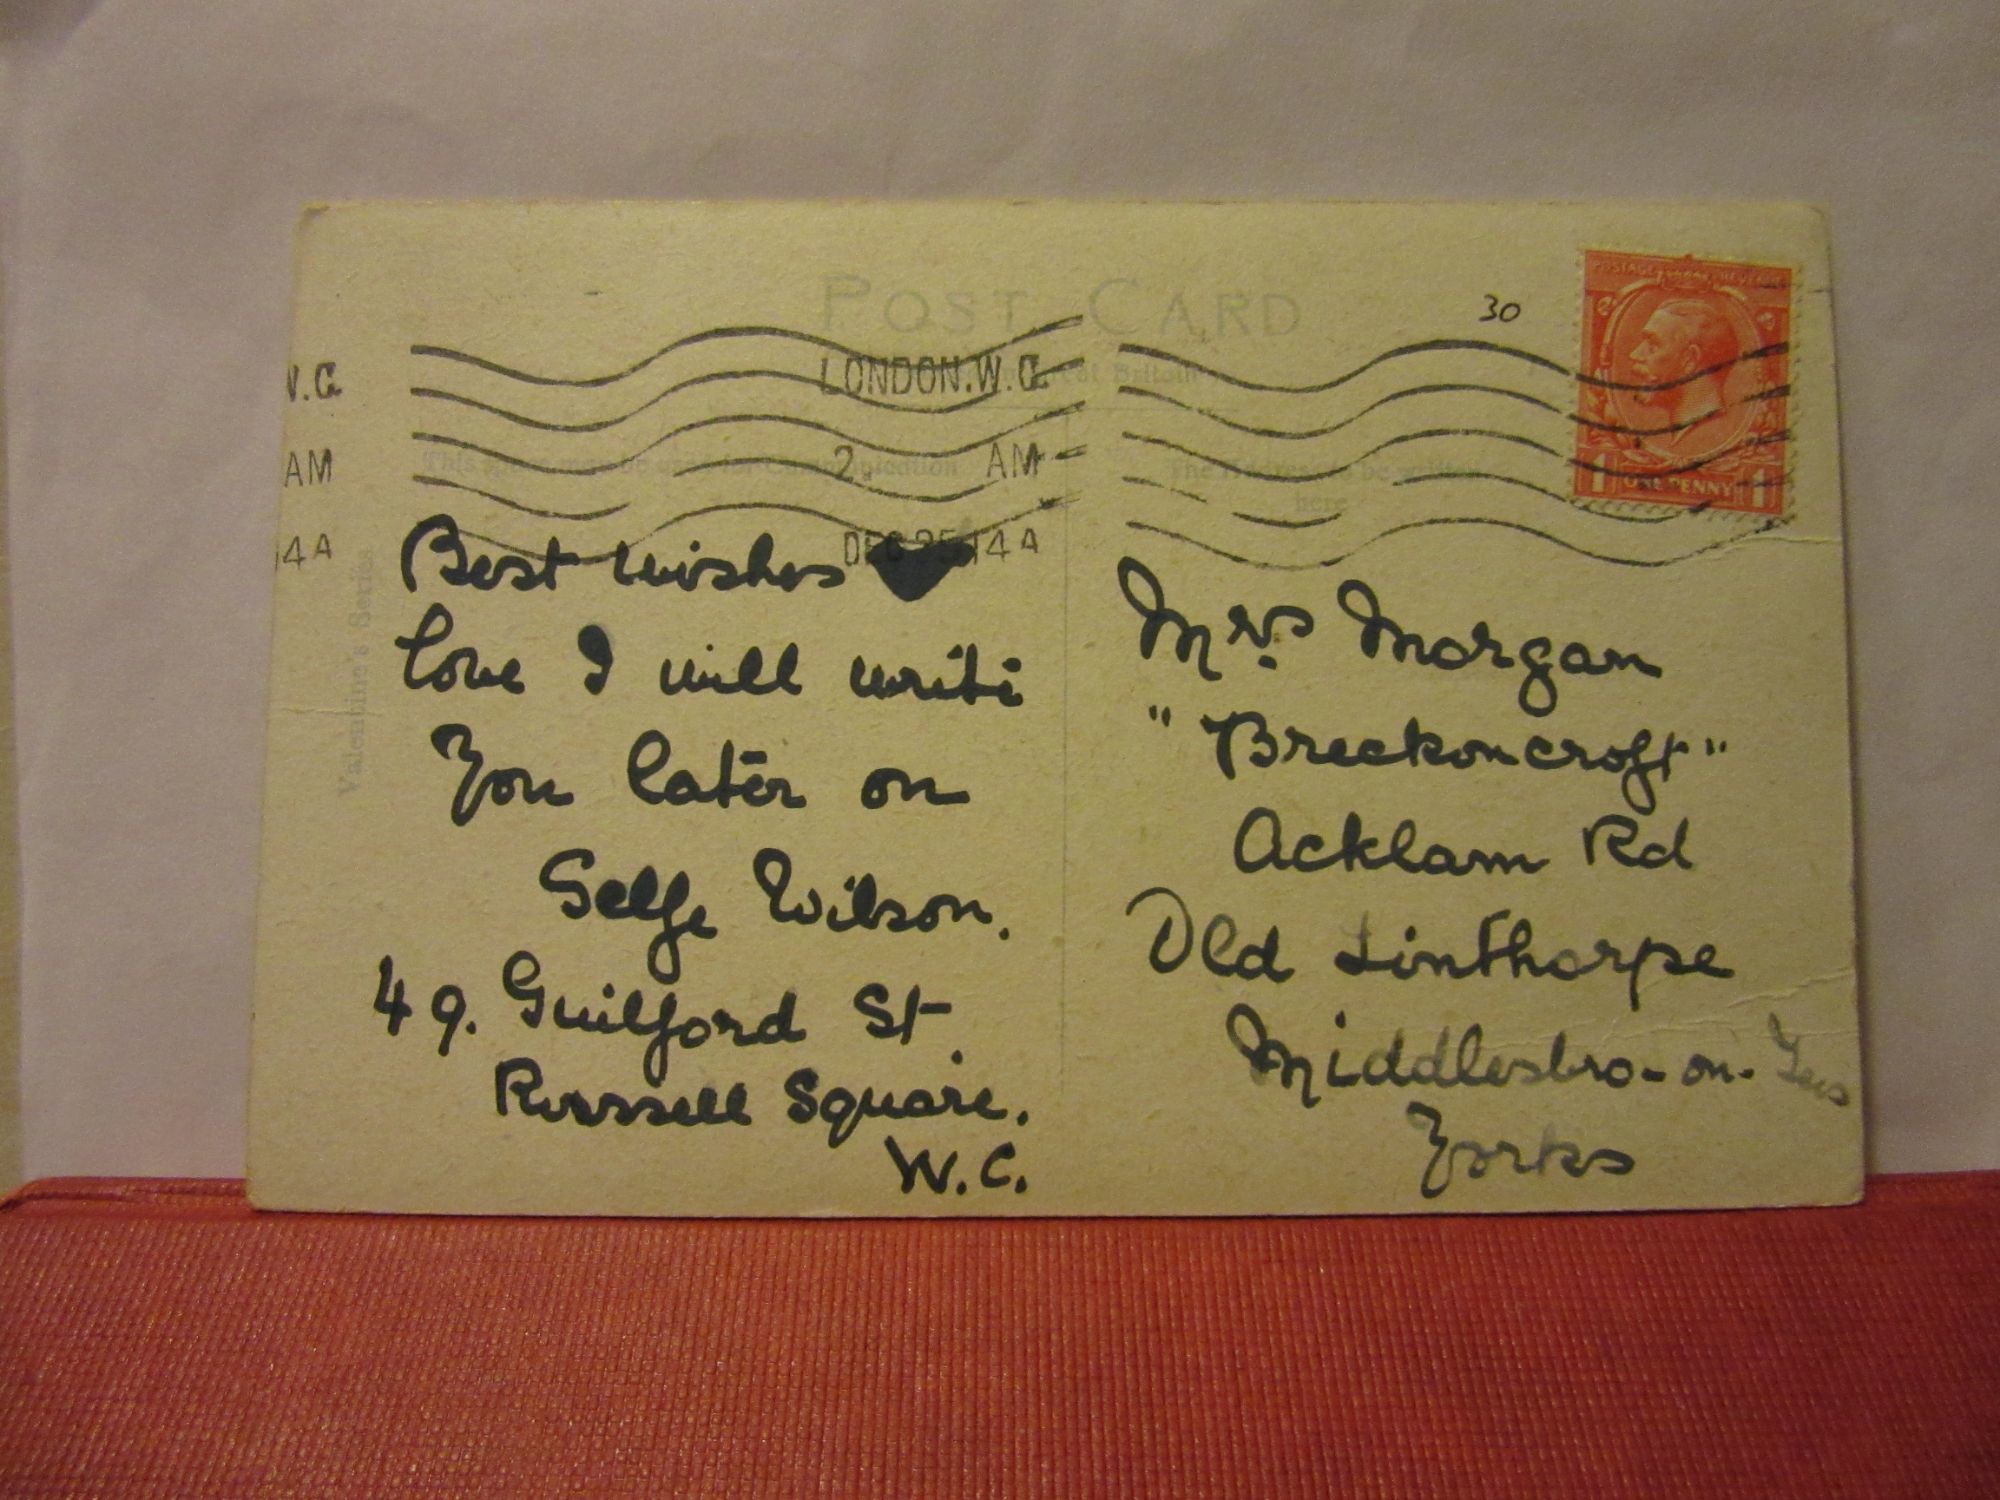 POST CARD
30
POSTAGE REVENUE
1 ONE PENNY 1
W.C. LONDON.W.C.
AM 2. AM
14 A DEC 25 14 A
This space may be used for Communication
The Address to be written
here
Valentine's Series
Best wishes
love I will write
You later on
Selfe Wilson.
49. Guilford St
Russell Square.
W.C.
Mrs Morgan
"Breckoncroft"
Acklam Rd
Old Linthorpe
Middlesbro-on-Tees
Yorks